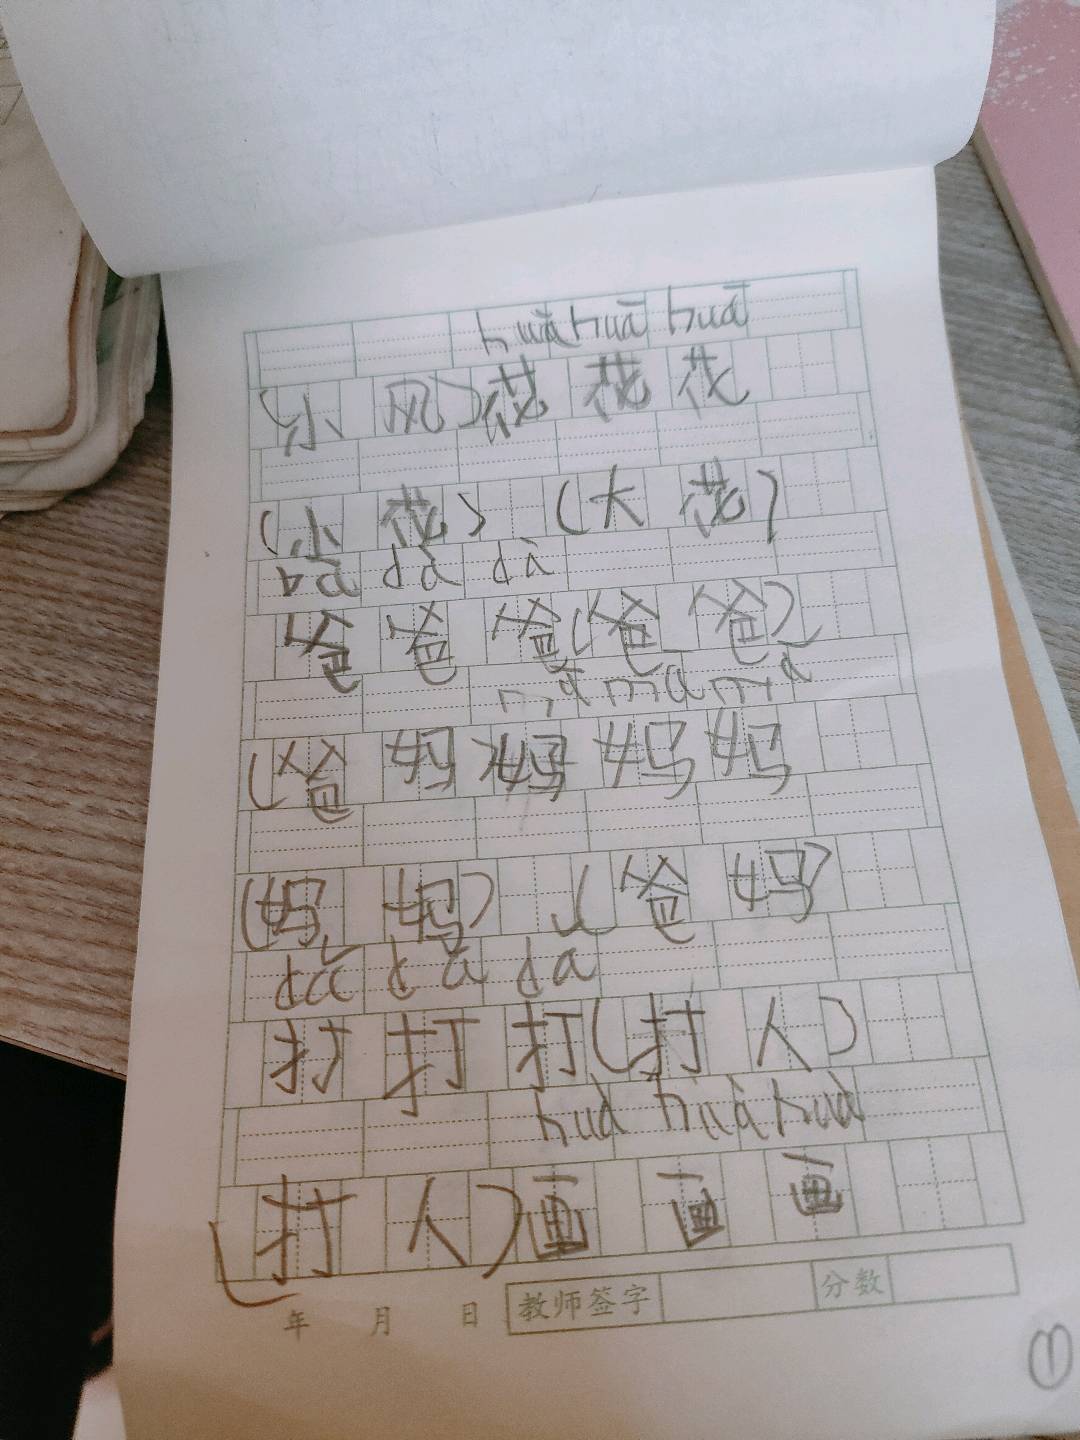 huā huā huā
(小 风) 花 花 花
(小 花) (大 花)
dà dà
爸 爸 爸 (爸 爸)
mā mā mā
(爸 妈) 妈 妈 妈
(妈 妈) (爸 妈)
dǎ dǎ da
打 打 打 (打 人)
huà huà huà
(打 人) 画 画 画
年 月 日 教师签字 分数
①